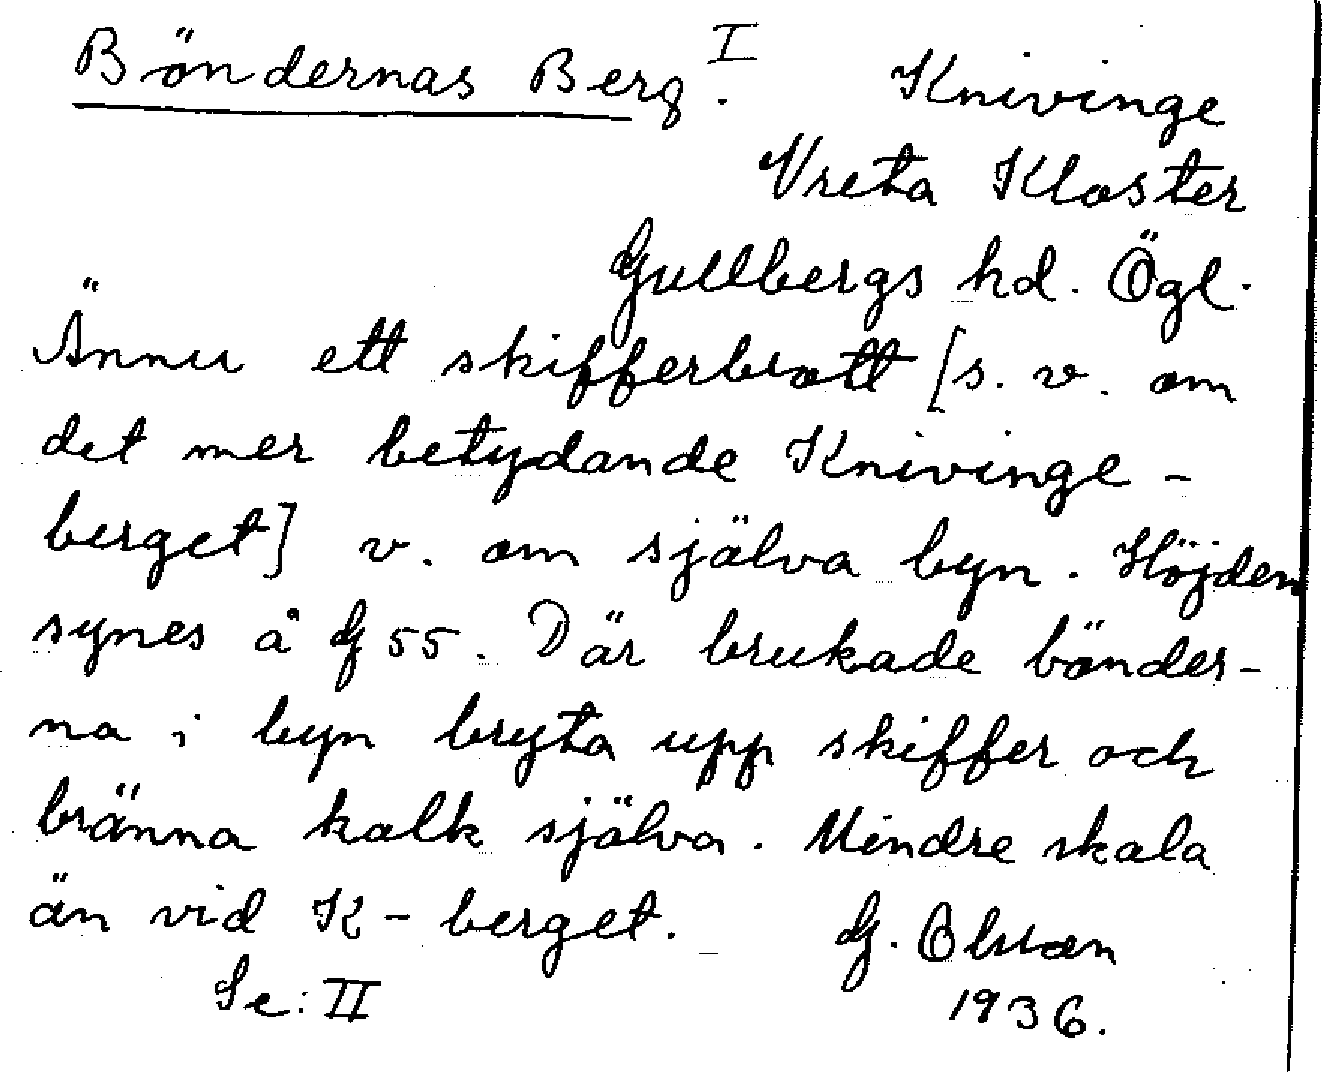 Böndernas Berg. I
Knivinge
Vreta Kloster
Gullbergs hd. Ögl.
Ännu ett skifferbrott [s. v. om
det mer betydande Knivinge-
berget] v. om själva byn. Höjden
synes å G 55. Där brukade bönder-
na i byn bryta upp skiffer och
bränna kalk själva. Mindre skala
än vid K-berget.
G. Olsson
Se: II
1936.